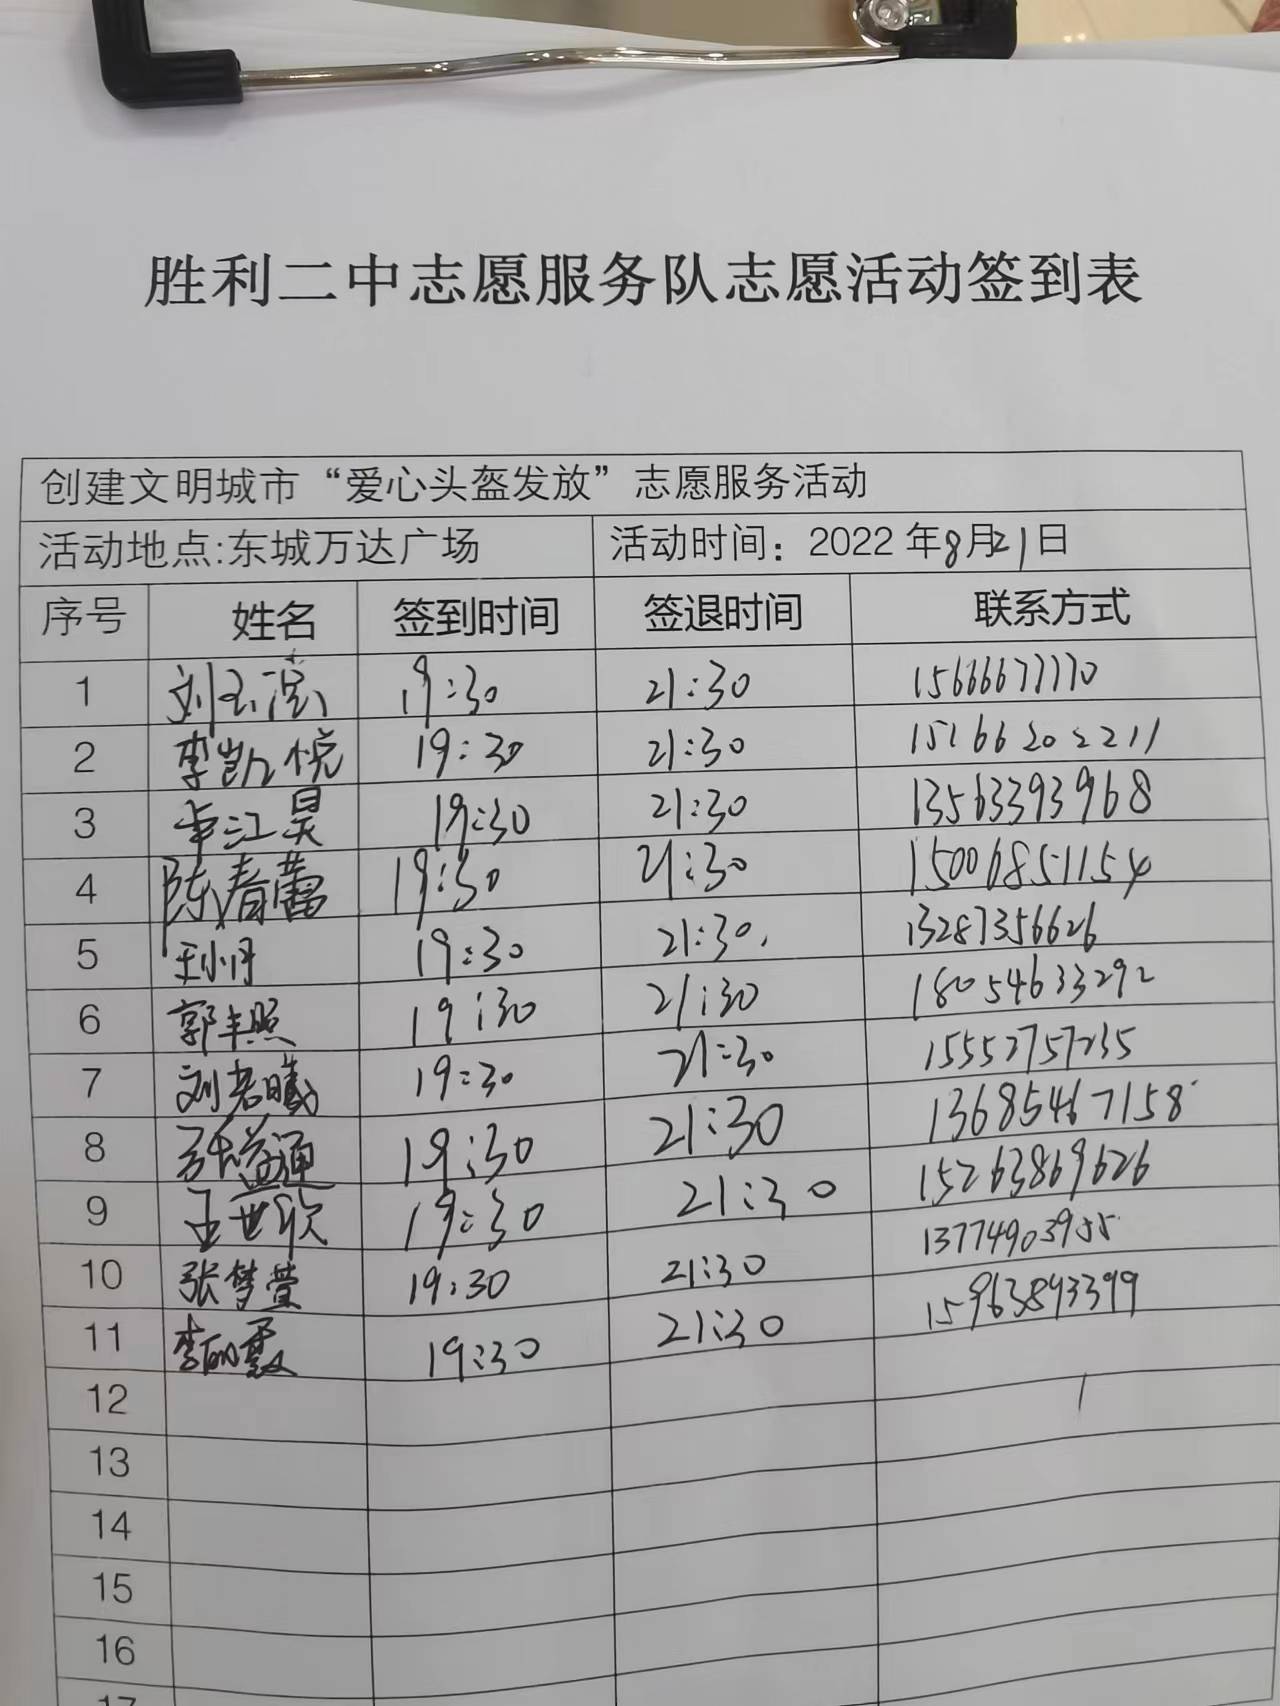 胜利二中志愿服务队志愿活动签到表
创建文明城市“爱心头盔发放”志愿服务活动
活动地点:东城万达广场 活动时间：2022年8月21日
序号 姓名 签到时间 签退时间 联系方式
1 刘玉滨 19:30 21:30 15666677770
2 李凯悦 19:30 21:30 15166202211
3 韦江昊 19:30 21:30 13563393968
4 陈春蕾 19:30 21:30 15006851154
5 王小丹 19:30 21:30. 13287356626
6 郭丰照 19:30 21:30 18054633292
7 刘君曦 19:30 21:30 15552757235
8 张益通 19:30 21:30 13685467158
9 王世欣 19:30 21:30 15263869626
10 张梦莹 19:30 21:30 13774903955
11 李 霞 19:30 21:30 15963893399
12
13
14
15
16
17